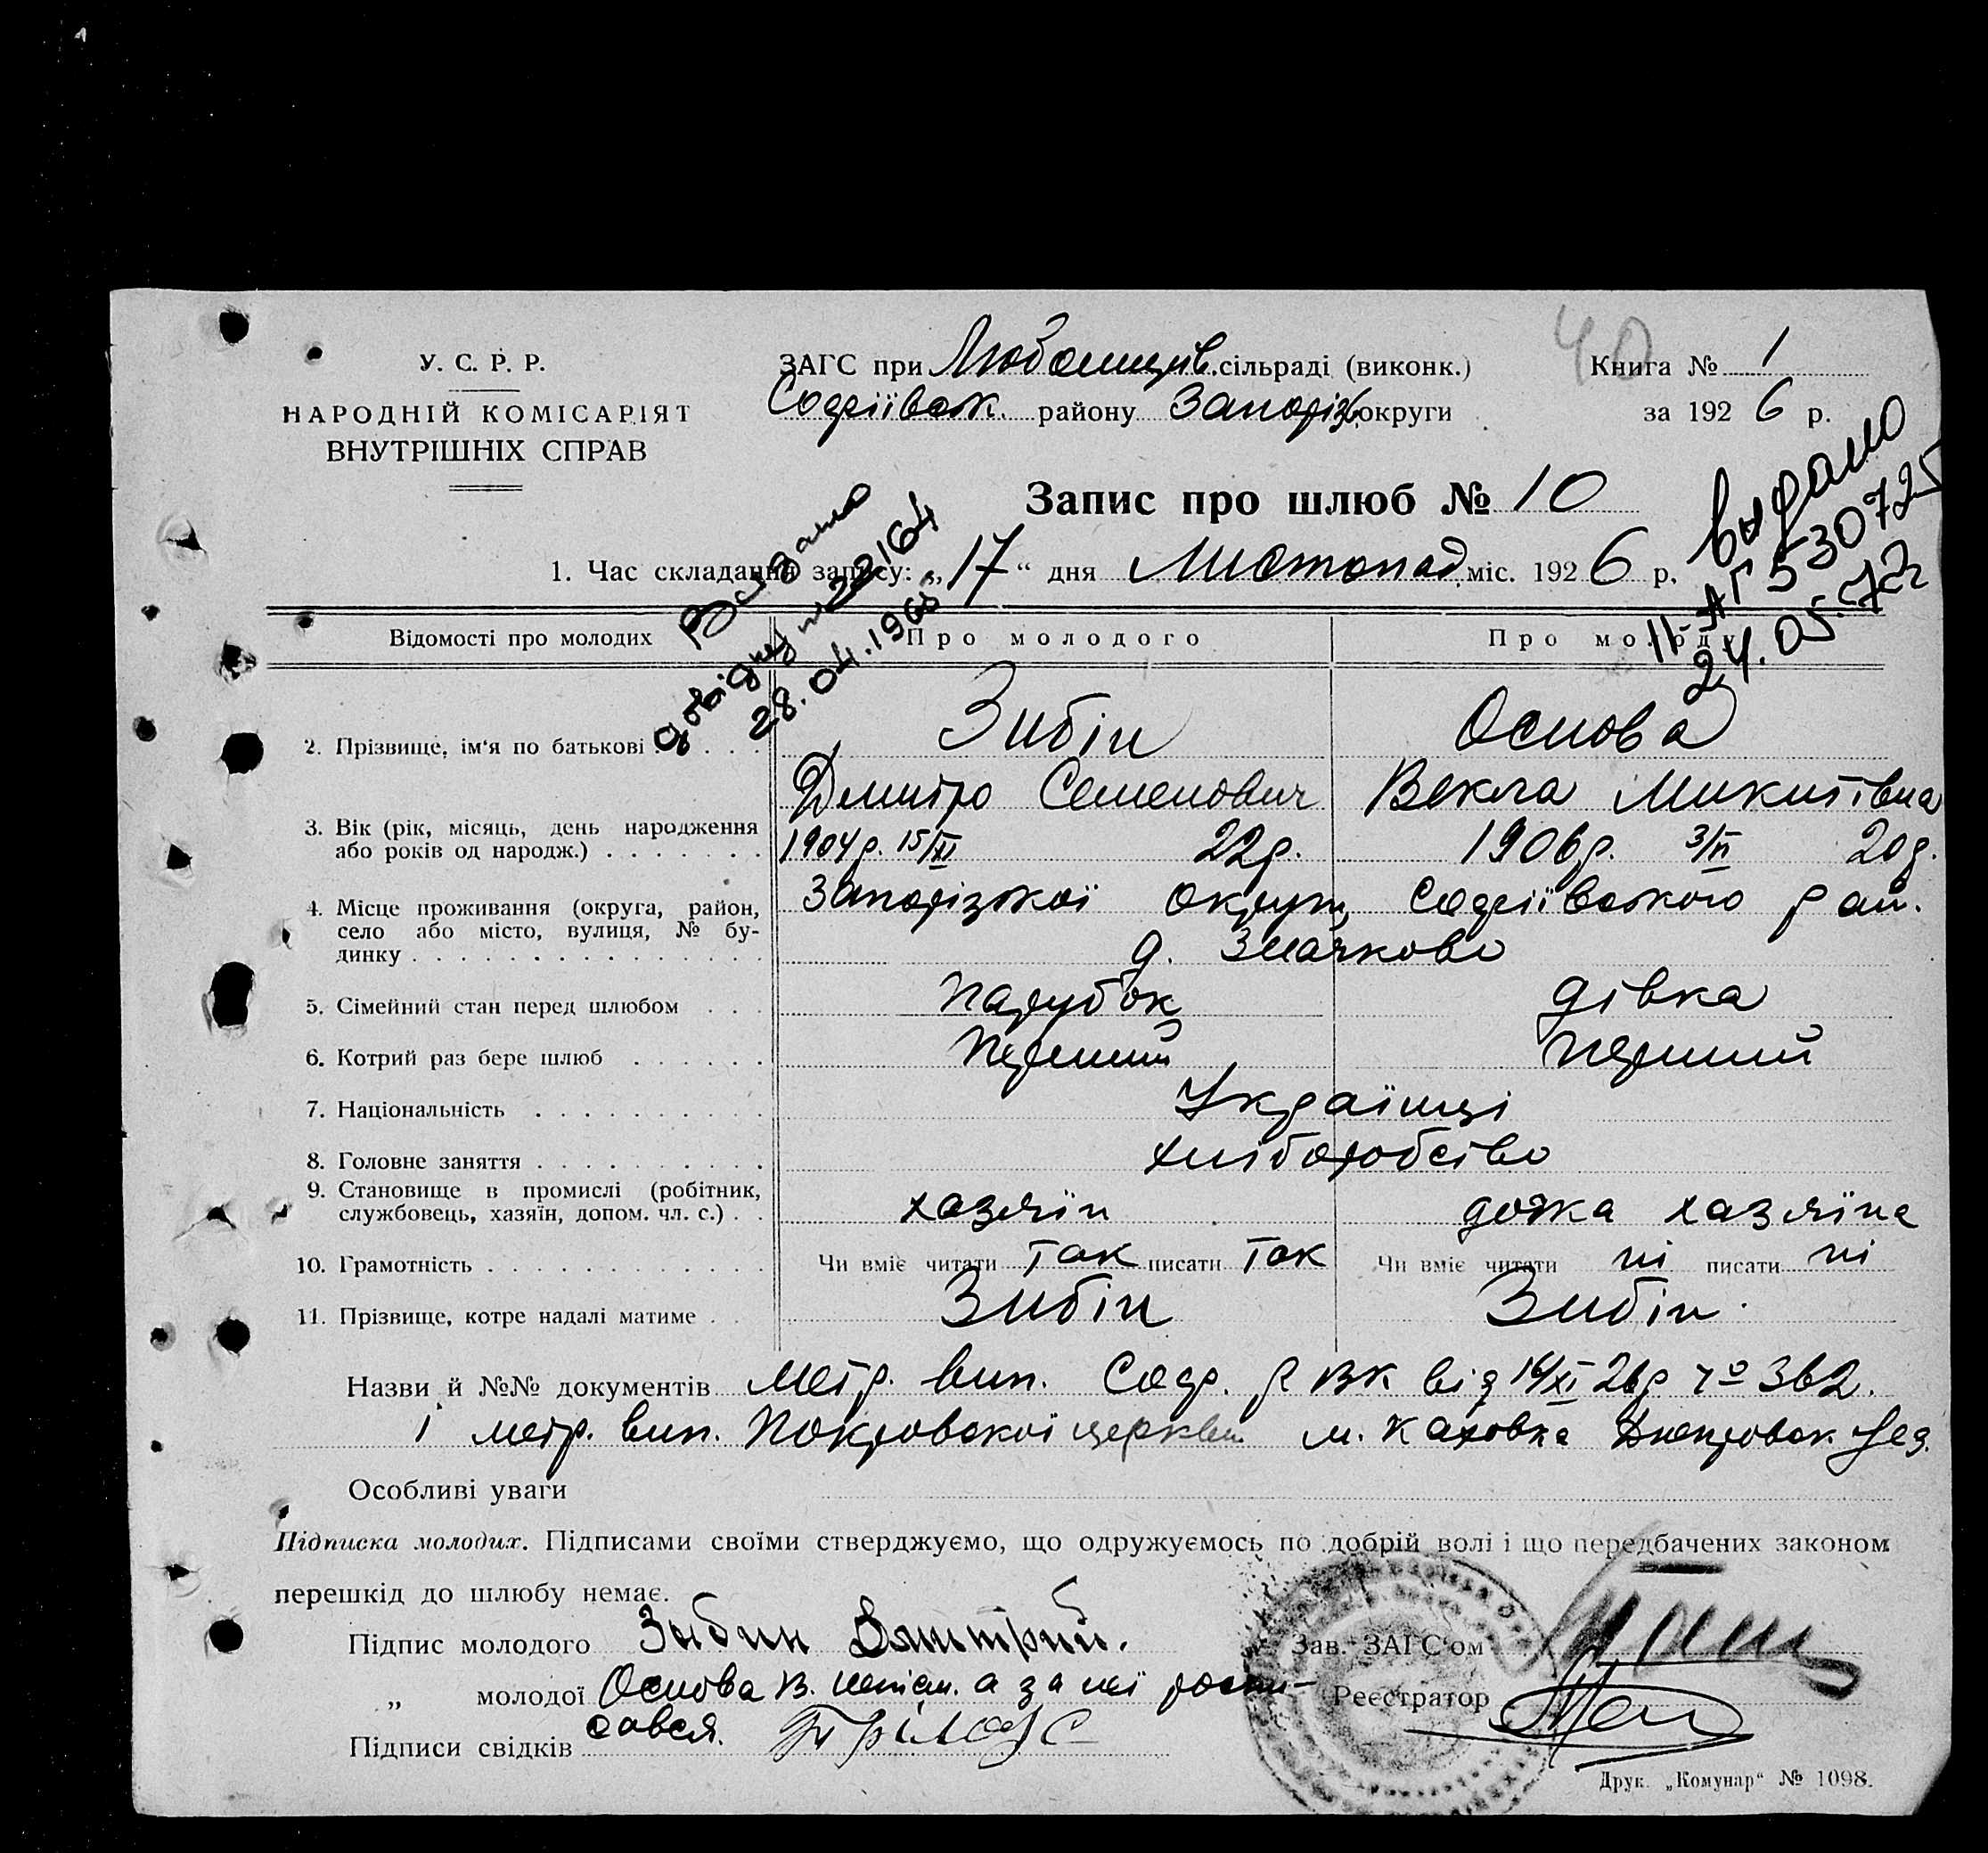 40
У. С. Р. Р.
НАРОДНІЙ КОМІСАРІЯТ
ВНУТРІШНІХ СПРАВ
ЗАГС при Любомирів. сільраді (виконк.)
Софіївськ. району Запоріж. округи
Книга № 1
за 1926 р.
Запис про шлюб № 10
1. Час складання запису: „17“ дня Листопад міс. 1926 р.
Видана
довідку № 22/64
28.04.196
Выдано
II-АГ 530725
24.05.72г
Відомості про молодих
Про молодого
Про молоду
2. Прізвище, ім'я по батькові
Зибін
Основа
Дмитро Семенович
Векла Микитівна
3. Вік (рік, місяць, день народження
або років од народж.)
1904р. 15/XI 22р.
1906р. 3/II 20р.
4. Місце проживання (округа, район,
село або місто, вулиця, № бу-
динку
Запорізької округи, Софіївського рай.
д. Значково
5. Сімейний стан перед шлюбом
парубок
дівка
6. Котрий раз бере шлюб
перший
перший
7. Національність
Українці
8. Головне заняття
хліборобство
9. Становище в промислі (робітник,
службовець, хазяїн, допом. чл. с.)
хазяїн
дочка хазяїна
10. Грамотність
Чи вміє читати так писати так
Чи вміє читати ні писати ні
11. Прізвище, котре надалі матиме
Зибін
Зибін.
Назви й №№ документів метр. вип. Соф. РВК від 16/XI 26р ч° 362.
і метр. вип. Покровської церкви м. Каховка Днепровск. уез.
Особливі уваги
Підписка молодих. Підписами своїми стверджуємо, що одружуємось по добрій волі і що передбачених законом
перешкід до шлюбу немає.
Підпис молодого Зыбин Дмитрий.
„ молодої Основа В. непісм. а за неї роспи-
сався.
Підписи свідків
Зав. ЗАГС'ом
Реєстратор
Друк. „Комунар“ № 1098.